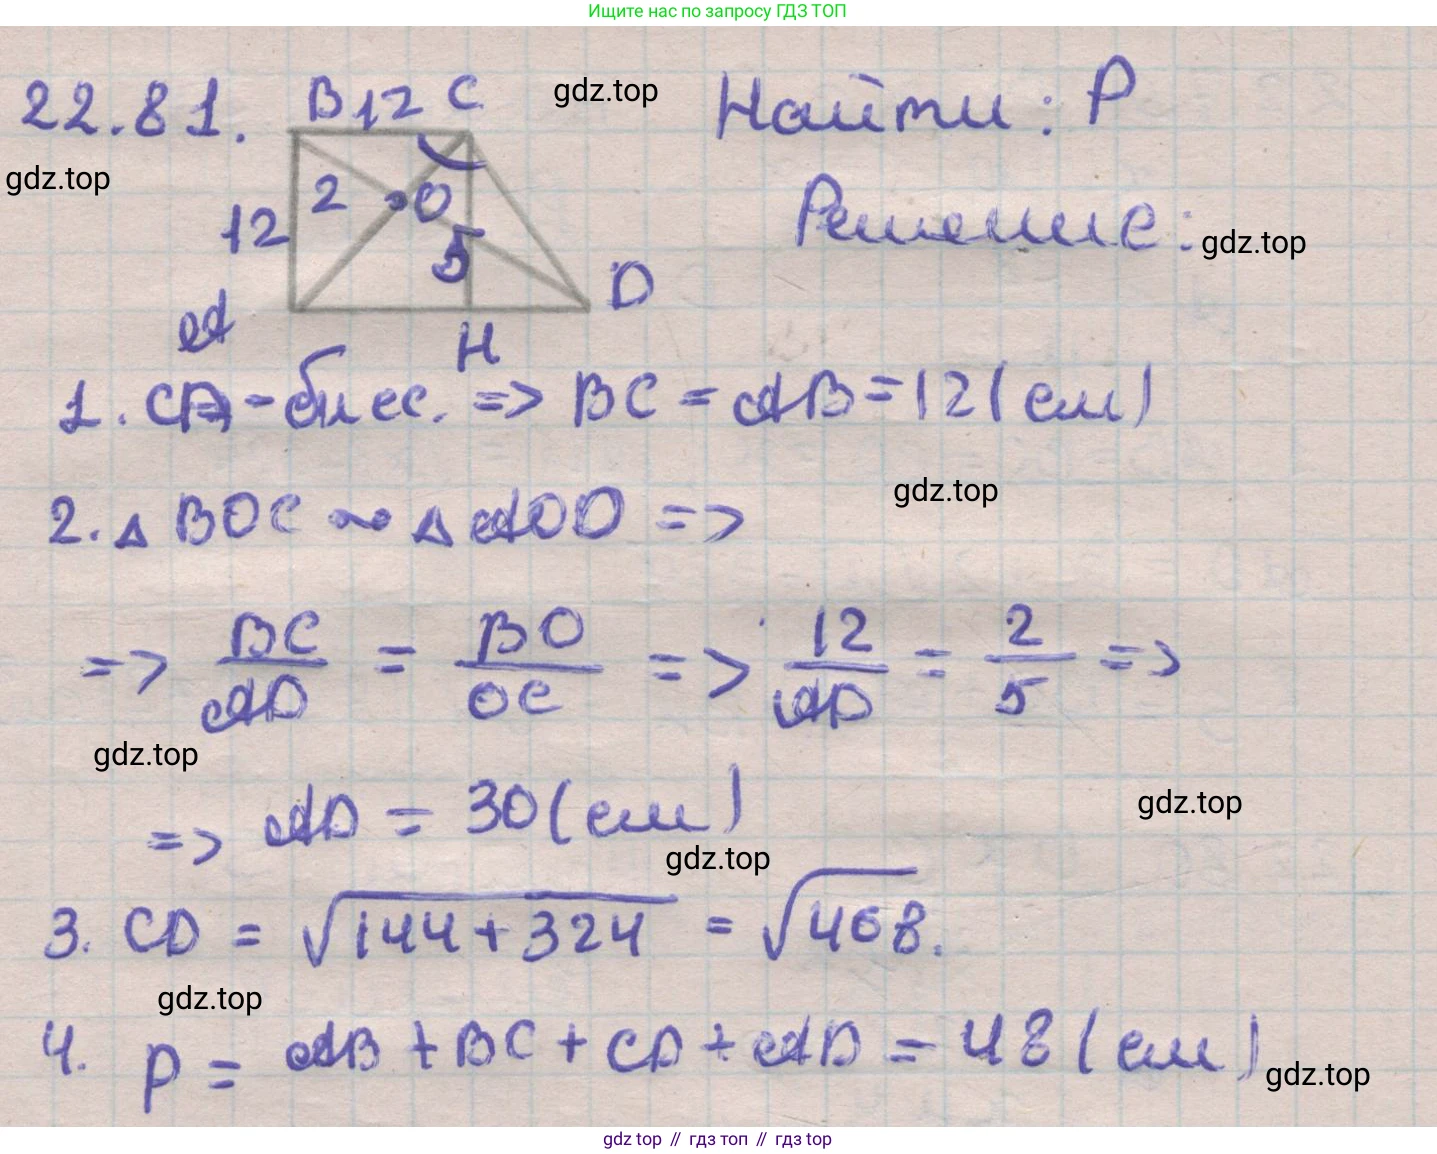 Ищите нас по запросу ГДЗ ТОП
22.81.
B 12 C
gdz.top
Найти: P
gdz.top
2
O
12
5
Решение:
gdz.top
D
A
H
1. CA - бисс. => BC = AB = 12 (см)
gdz.top
2. △ BOC ~ △ AOD =>
=> BC/AD = BO/OC => 12/AD = 2/5 =>
gdz.top
=> AD = 30 (см)
gdz.top
gdz.top
3. CD = √144+324 = √468.
gdz.top
4. P = AB + BC + CD + AD = 48 (см)
gdz.top
gdz top // гдз топ // gdz top